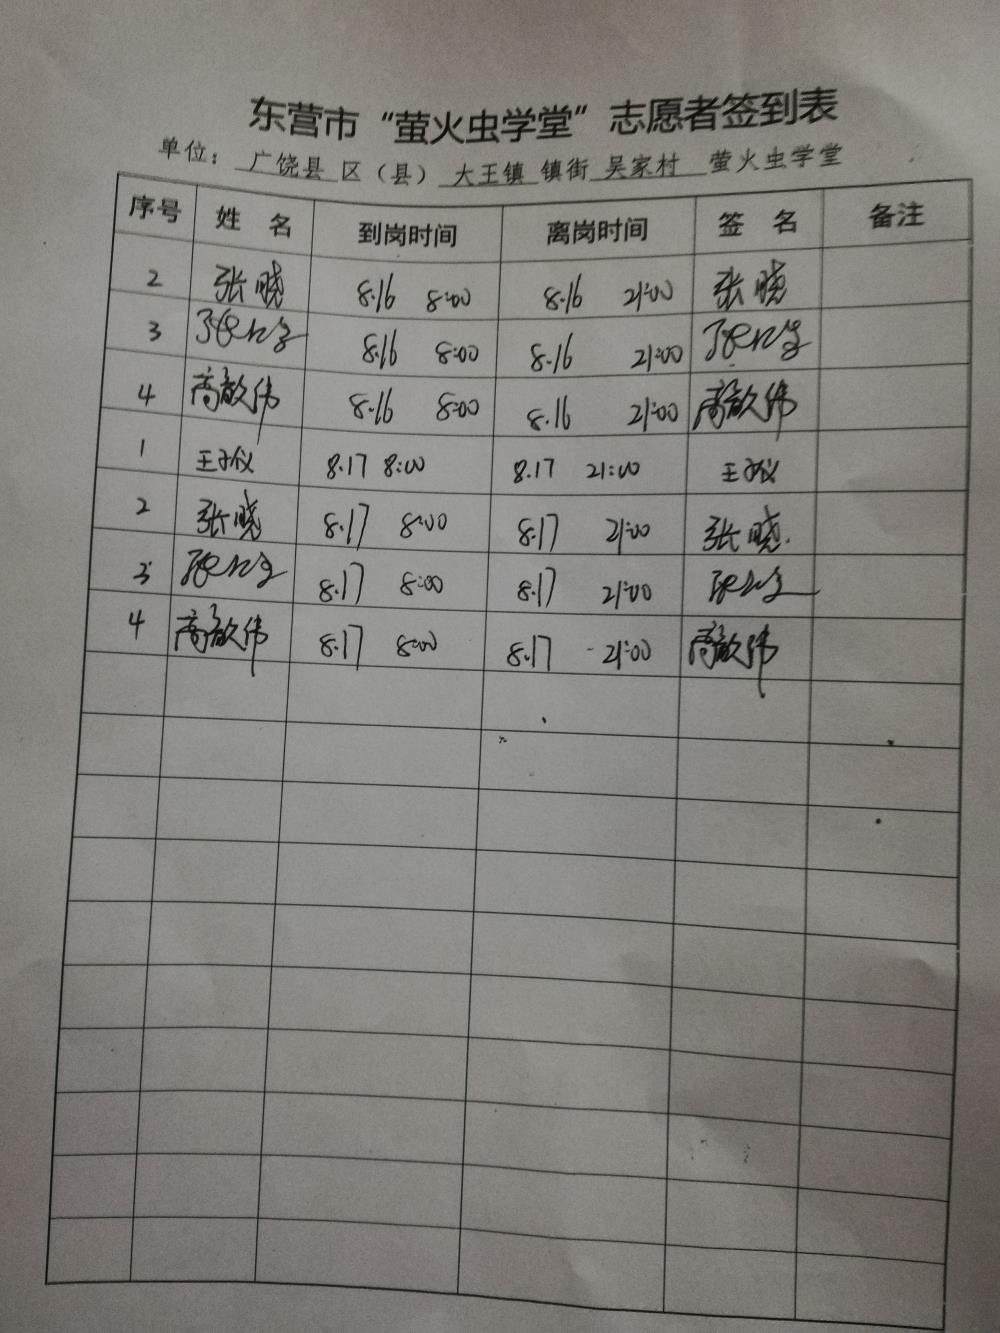 东营市“萤火虫学堂”志愿者签到表
单位： 广饶县 区（县） 大王镇 镇街 吴家村 萤火虫学堂
序号 姓 名 到岗时间 离岗时间 签 名 备注
2 张晓 8.16 8:00 8.16 21:00 张晓
3 8.16 8:00 8.16 21:00
4 高歆伟 8.16 8:00 8.16 21:00 高歆伟
1 8.17 8:00 8.17 21:00
2 张晓 8.17 8:00 8.17 21:00 张晓
3 8.17 8:00 8.17 21:00
4 高歆伟 8.17 8:00 8.17 21:00 高歆伟